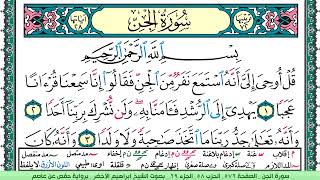 سُورَةُ الْجِنِّ
بِسْمِ اللَّهِ الرَّحْمَٰنِ الرَّحِيمِ
قُلْ أُوحِيَ إِلَيَّ أَنَّهُ اسْتَمَعَ نَفَرٌ مِّنَ الْجِنِّ فَقَالُوا إِنَّا سَمِعْنَا قُرْءَانًا
عَجَبًا ١ يَهْدِي إِلَى الرُّشْدِ فَـَٔامَنَّا بِهِ وَلَن نُّشْرِكَ بِرَبِّنَا أَحَدًا ٢
وَأَنَّهُ تَعَالَىٰ جَدُّ رَبِّنَا مَا اتَّخَذَ صَاحِبَةً وَلَا وَلَدًا ٣ وَأَنَّهُ كَانَ
سورة الجن . الصفحة ٥٧٢ . الحزب ٥٨ . الجزء ٢٩ . بصوت الشيخ ابراهيم الاخضر . برواية حفص عن عاصم